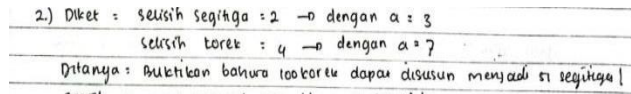 2.) Diket : selisih segitiga : 2 → dengan a : 3
selisih korek : 4 → dengan a = 7
Ditanya : Buktikan bahwa 100 korek dapat disusun menjadi 51 segitiga !